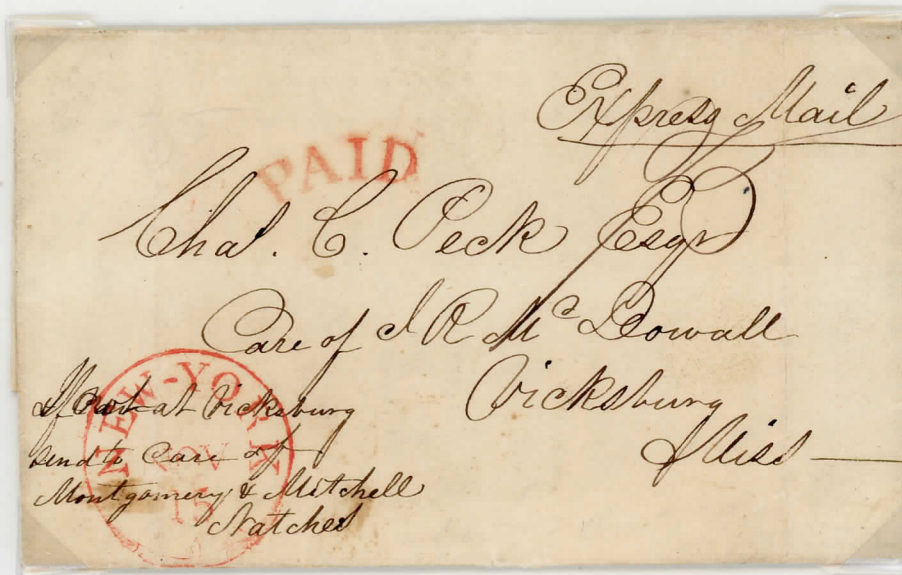 Express Mail
PAID
Chas. C. Peck Esqr
Care of J R McDowall
Vicksburg
Miss
NEW-YORK
NOV
15
If not at Vicksburg
send to Care of
Montgomery & Mitchell
Natches